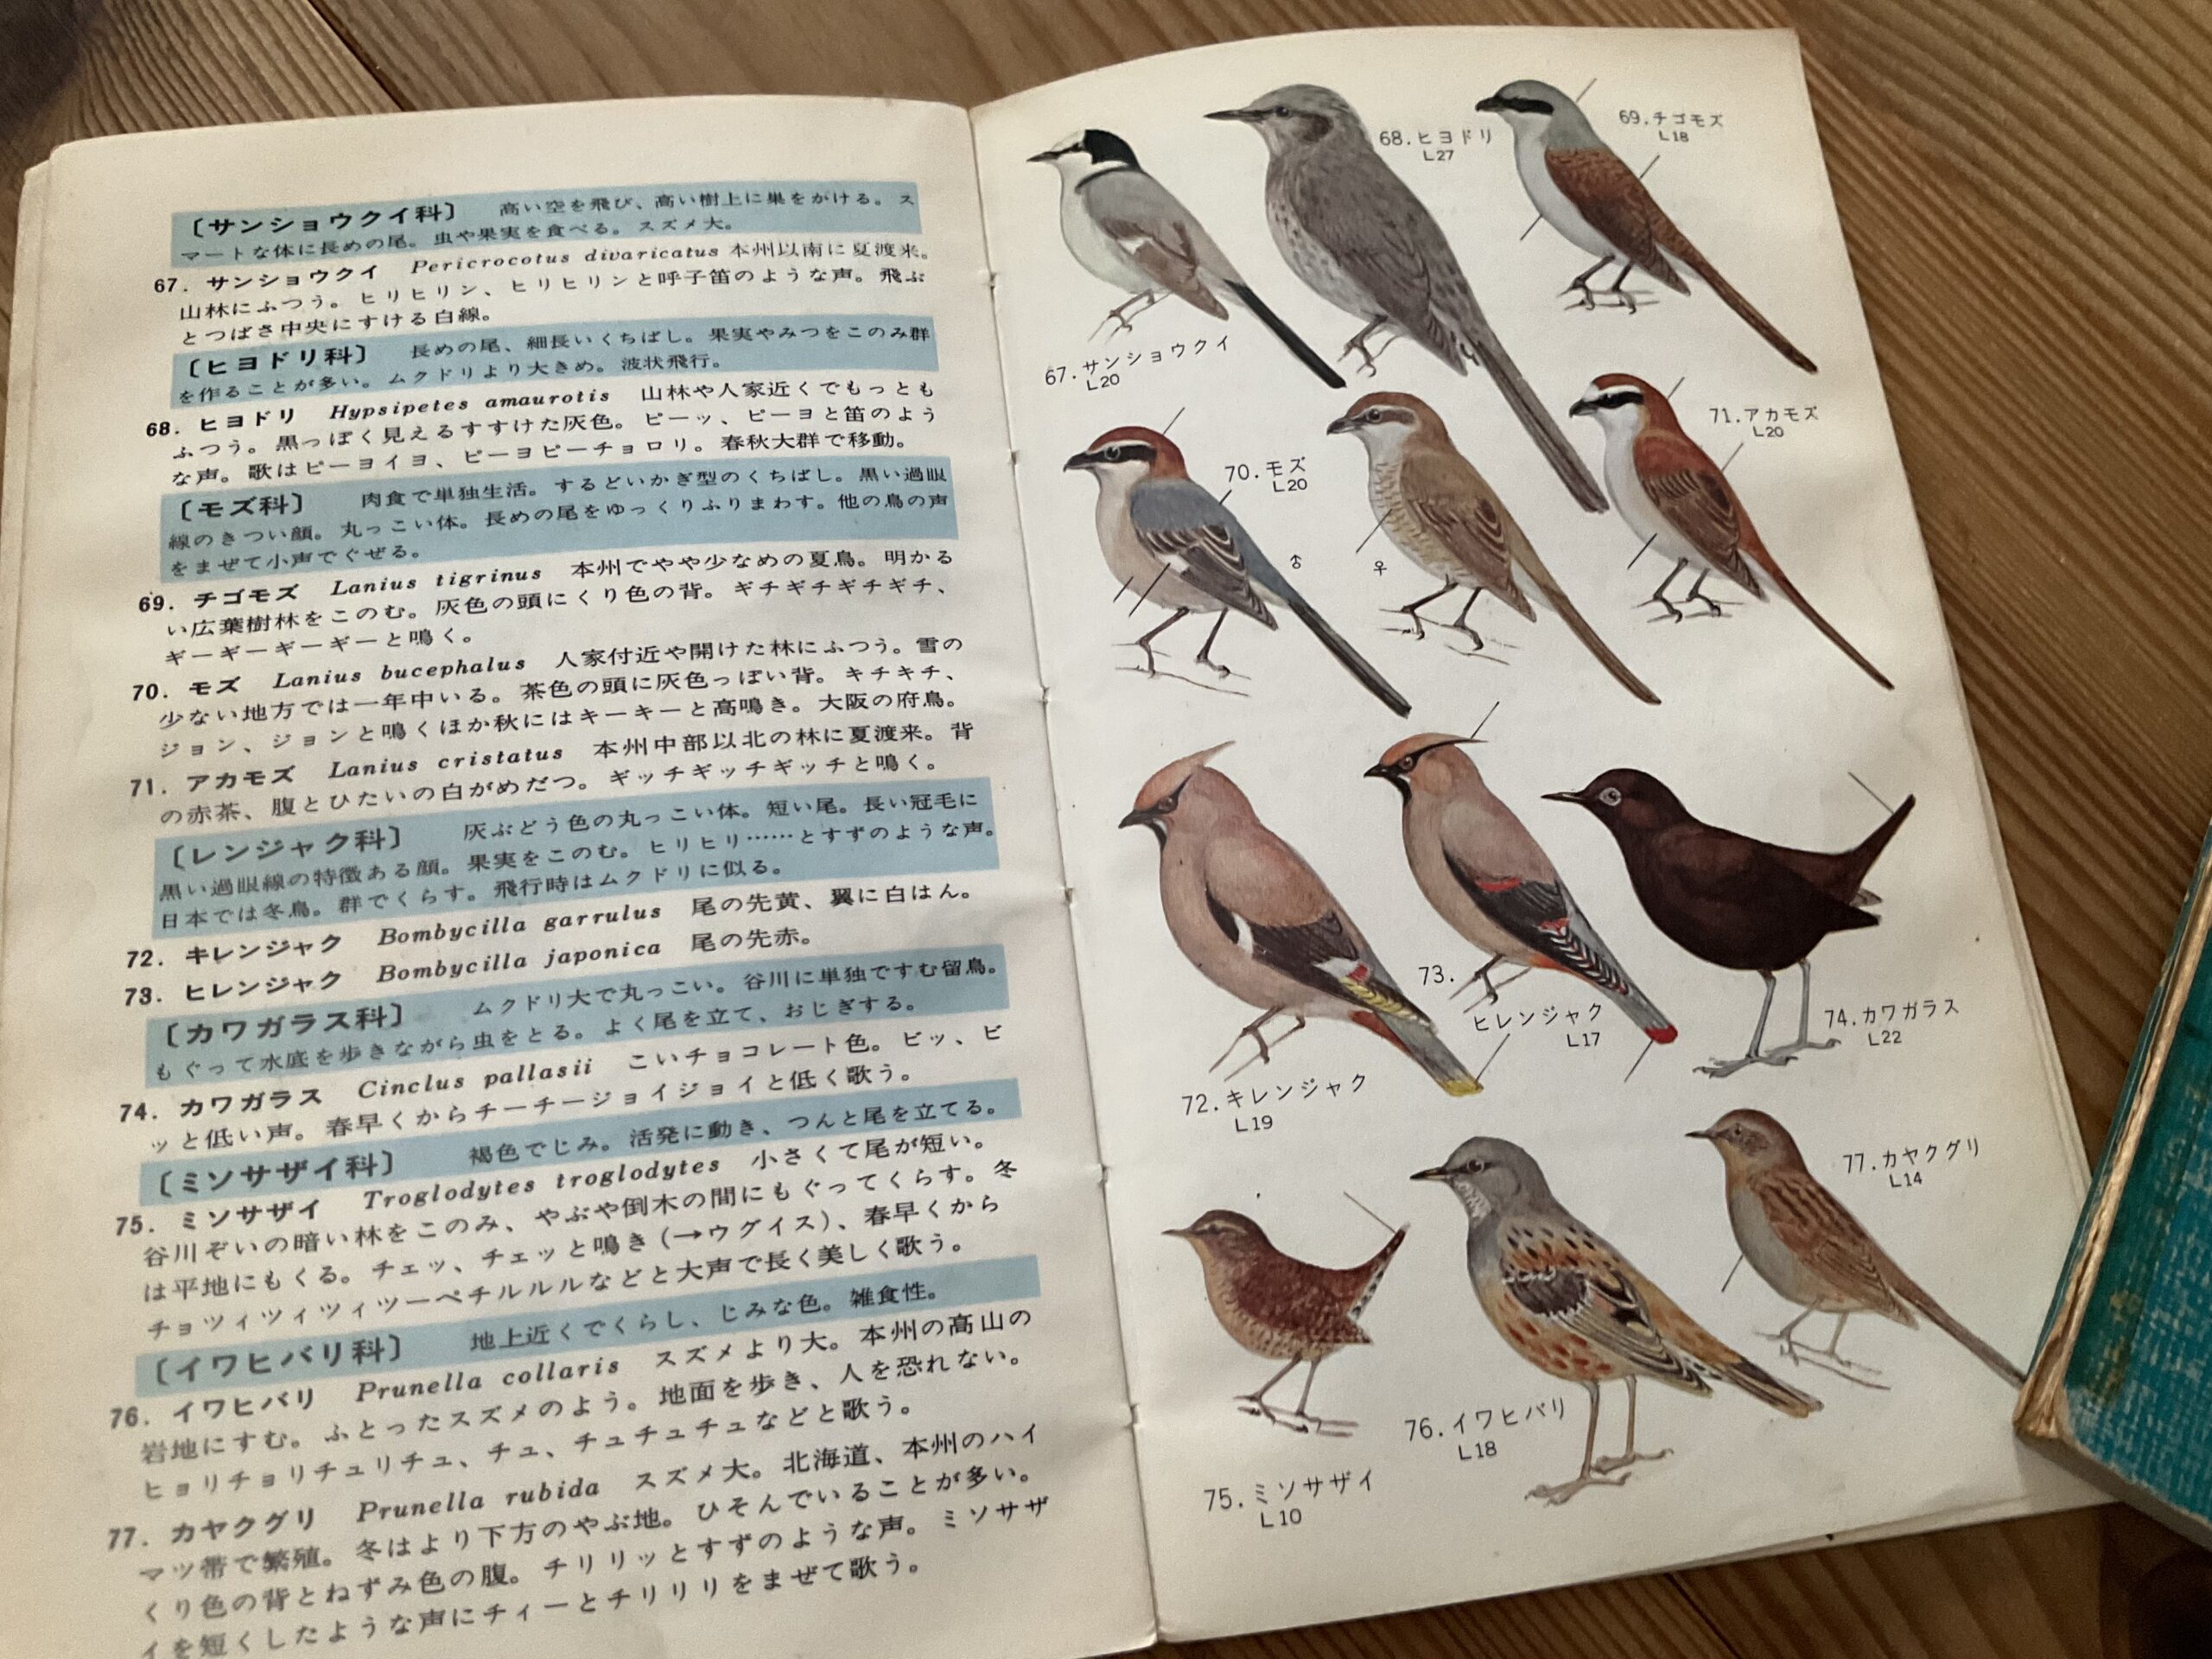 〔サンショウクイ科〕　高い空を飛び、高い樹上に巣をかける。ス
マートな体に長めの尾。虫や果実を食べる。スズメ大。
67. サンショウクイ　Pericrocotus divaricatus 本州以南に夏渡来。
山林にふつう。ヒリヒリン、ヒリヒリンと呼子笛のような声。飛ぶ
とつばさ中央にすける白線。
〔ヒヨドリ科〕　長めの尾、細長いくちばし。果実やみつをこのみ群
を作ることが多い。ムクドリより大きめ。波状飛行。
68. ヒヨドリ　Hypsipetes amaurotis　山林や人家近くでもっとも
ふつう。黒っぽく見えるすすけた灰色。ピーッ、ピーヨと笛のよう
な声。歌はピーヨイヨ、ピーヨピーチョロリ。春秋大群で移動。
〔モズ科〕　肉食で単独生活。するどいかぎ型のくちばし。黒い過眼
線のきつい顔。丸っこい体。長めの尾をゆっくりふりまわす。他の鳥の声
をまぜて小声でぐぜる。
69. チゴモズ　Lanius tigrinus　本州でやや少なめの夏鳥。明かる
い広葉樹林をこのむ。灰色の頭にくり色の背。ギチギチギチギチ、
ギーギーギーギーと鳴く。
70. モズ　Lanius bucephalus　人家付近や開けた林にふつう。雪の
少ない地方では一年中いる。茶色の頭に灰色っぽい背。キチキチ、
ジョン、ジョンと鳴くほか秋にはキーキーと高鳴き。大阪の府鳥。
71. アカモズ　Lanius cristatus　本州中部以北の林に夏渡来。背
の赤茶、腹とひたいの白がめだつ。ギッチギッチギッチと鳴く。
〔レンジャク科〕　灰ぶどう色の丸っこい体。短い尾。長い冠毛に
黒い過眼線の特徴ある顔。果実をこのむ。ヒリヒリ……とすずのような声。
日本では冬鳥。群でくらす。飛行時はムクドリに似る。
72. キレンジャク　Bombycilla garrulus　尾の先黄、翼に白はん。
73. ヒレンジャク　Bombycilla japonica　尾の先赤。
〔カワガラス科〕　ムクドリ大で丸っこい。谷川に単独ですむ留鳥。
もぐって水底を歩きながら虫をとる。よく尾を立て、おじぎする。
74. カワガラス　Cinclus pallasii　こいチョコレート色。ビッ、ビ
ッと低い声。春早くからチーチージョイジョイと低く歌う。
〔ミソサザイ科〕　褐色でじみ。活発に動き、つんと尾を立てる。
75. ミソサザイ　Troglodytes troglodytes　小さくて尾が短い。
谷川ぞいの暗い林をこのみ、やぶや倒木の間にもぐってくらす。冬
は平地にもくる。チェッ、チェッと鳴き(→ウグイス)、春早くから
チョツィツィツィツーペチルルルなどと大声で長く美しく歌う。
〔イワヒバリ科〕　地上近くでくらし、じみな色。雑食性。
76. イワヒバリ　Prunella collaris　スズメより大。本州の高山の
岩地にすむ。ふとったスズメのよう。地面を歩き、人を恐れない。
ヒョリチョリチュリチュ、チュ、チュチュチュなどと歌う。
77. カヤクグリ　Prunella rubida　スズメ大。北海道、本州のハイ
マツ帯で繁殖。冬はより下方のやぶ地。ひそんでいることが多い。
くり色の背とねずみ色の腹。チリリッとすずのような声。ミソサザ
イを短くしたような声にチィーとチリリリをまぜて歌う。
67.サンショウクイ
L20
68.ヒヨドリ
L27
69.チゴモズ
L18
70.モズ
L20
♂
♀
71.アカモズ
L20
72.キレンジャク
L19
73.
ヒレンジャク
L17
74.カワガラス
L22
75.ミソサザイ
L10
76.イワヒバリ
L18
77.カヤクグリ
L14